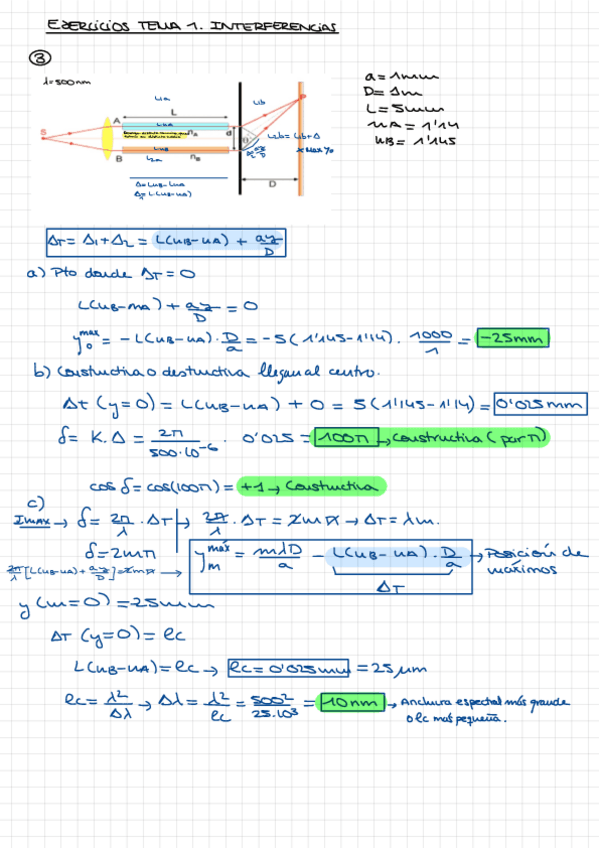 EJERCICIOS TEMA 1. INTERFERENCIAS
③
λ=500nm
a=1mm
D=1m
L=5mm
nA=1'14
nB=1'145
L
A
nA
S
B
nB
d
D
P
Δ=LnB-LnA
Δ=L(nB-nA)
ΔT=Δ1+Δ2=L(nB-nA)+ay/D
a) Pto donde ΔT=0
L(nB-nA)+ay/D=0
y0^max=-L(nB-nA)·D/a=-5(1'145-1'14)·1000/1=-25mm
b) Constructiva o destructiva llegan al centro.
Δt(y=0)=L(nB-nA)+0=5(1'145-1'14)=0'025mm
δ=K·Δ=2π/500·10^-6·0'025=100π→Constructiva (par π)
cos δ=cos(100π)=+1→Constructiva
c)
Imax→δ=2π/λ·ΔT→2π/λ·ΔT=2mπ→ΔT=λm.
δ=2mπ
2π/λ[L(nB-nA)+ay/D]=2mπ→
ym^máx=mλD/a-L(nB-nA)·D/a→Posición de máximos
ΔT
y(m=0)=25mm
ΔT(y=0)=lc
L(nB-nA)=lc→lc=0'025mm=25μm
lc=λ²/Δλ→Δλ=λ²/lc=500²/25·10³=10nm→Anchura espectral más grande
o lc más pequeña.